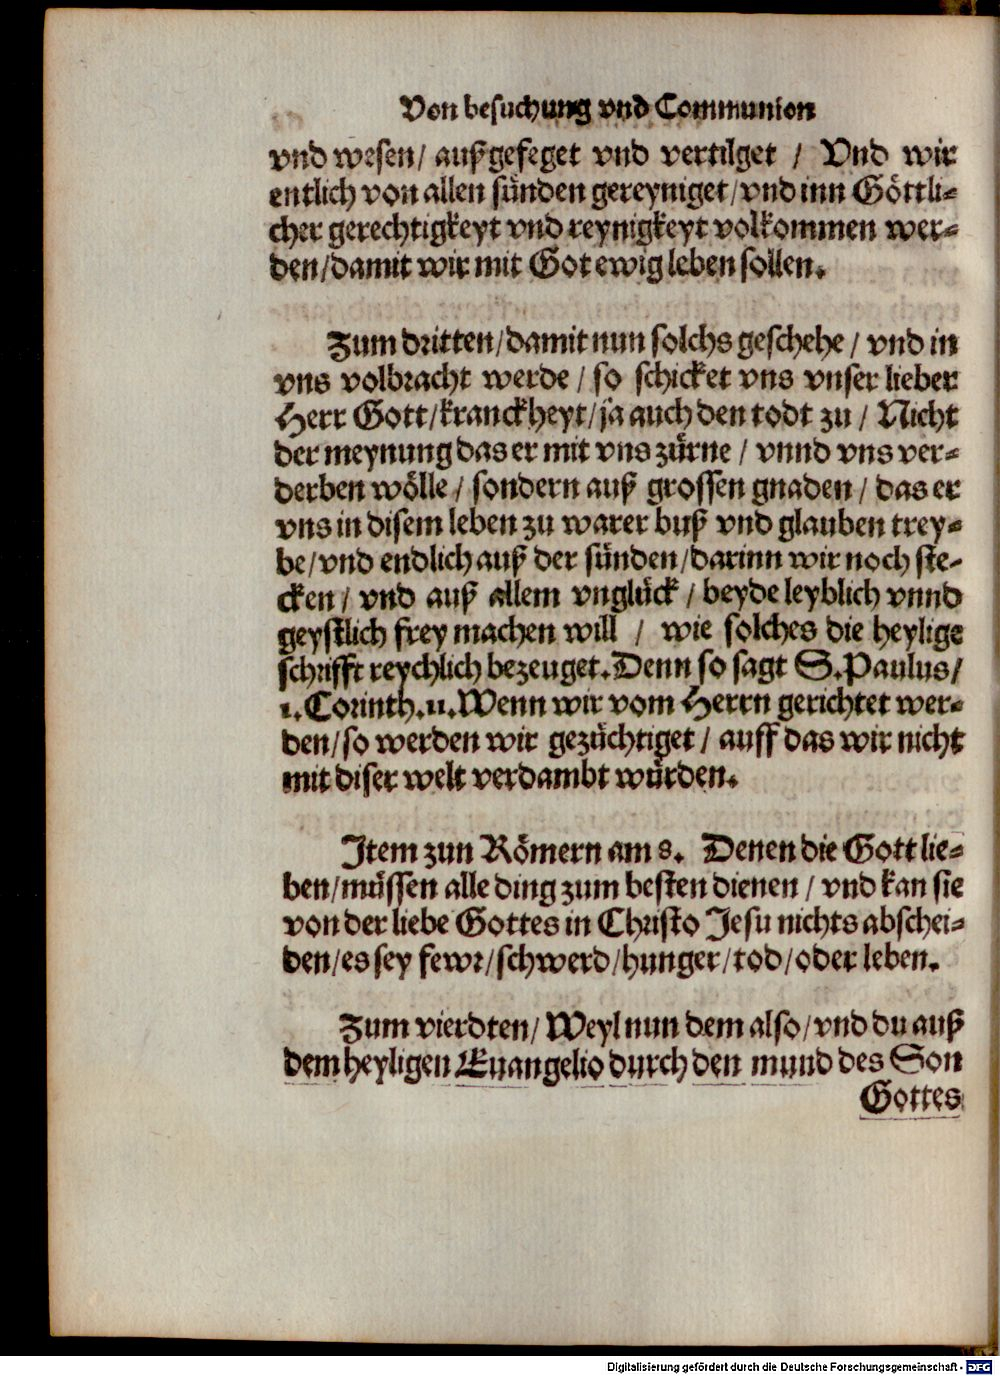 Von besuchung vnd Communion
vnd wesen/ außgefeget vnd vertilget / Vnd wir
entlich von allen sünden gereyniget/vnd inn Göttli-
cher gerechtigkeyt vnd reynigkeyt volkommen wer-
den/damit wir mit Got ewig leben sollen.
Zum dritten/damit nun solchs geschehe / vnd in
vns volbracht werde / so schicket vns vnser lieber
Herr Gott/kranckheyt/ja auch den todt zu / Nicht
der meynung das er mit vns zürne / vnnd vns ver-
derben wölle / sondern auß grossen gnaden / das er
vns in disem leben zu warer buß vnd glauben trey-
be/vnd endlich auß der sünden/darinn wir noch ste-
cken / vnd auß allem vnglück / beyde leyblich vnnd
geystlich frey machen will / wie solches die heylige
schrifft reychlich bezeuget.Denn so sagt S.Paulus/
1.Corinth.11.Wenn wir vom Herrn gerichtet wer-
den/so werden wir gezüchtiget / auff das wir nicht
mit diser welt verdambt würden.
Item zun Römern am 8. Denen die Gott lie-
ben/müssen alle ding zum besten dienen / vnd kan sie
von der liebe Gottes in Christo Jesu nichts abschei-
den/es sey fewr/schwerd/hunger/tod/oder leben.
Zum vierdten/ Weyl nun dem also/vnd du auß
dem heyligen Euangelio durch den mund des Son
Gottes
Digitalisierung gefördert durch die Deutsche Forschungsgemeinschaft - DFG